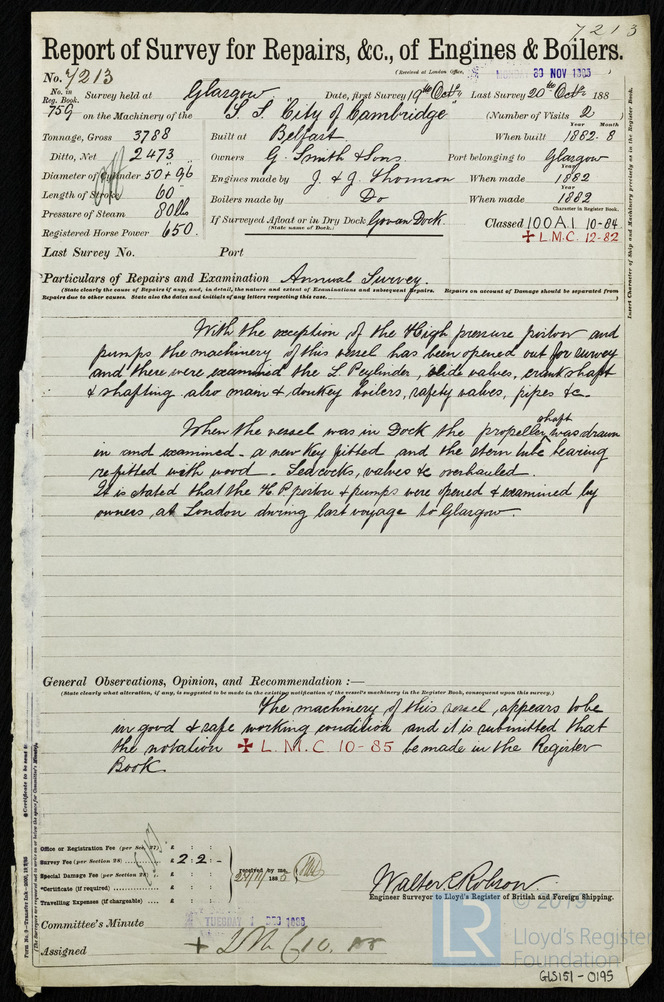 7213
Report of Survey for Repairs, &c., of Engines & Boilers.
(Received at London Office, MONDAY 30 NOV 1885)
No. 7213
No. in Reg. Book. 759 Survey held at Glasgow Date, first Survey 19th Octr Last Survey 20th Octr 188
on the Machinery of the S. S. "City of Cambridge" (Number of Visits 2)
Tonnage, Gross 3788 Built at Belfast When built Year Month 1882. 8
Ditto, Net 2473 Owners G. Smith & Sons Port belonging to Glasgow
Diameter of Cylinder 50 + 96 Engines made by J. & G. Thomson When made Year 1882
Length of Stroke 60" Boilers made by Do When made Year 1882
Pressure of Steam 80 lbs If Surveyed Afloat or in Dry Dock Govan Dock.
(State name of Dock.)
Character in Register Book.
Classed 100A1 10-84
Registered Horse Power 650. ✠ L.M.C. 12-82
Last Survey No. Port
Particulars of Repairs and Examination Annual Survey.
(State clearly the cause of Repairs if any, and, in detail, the nature and extent of Examinations and subsequent Repairs. Repairs on account of Damage should be separated from
Repairs due to other causes. State also the dates and initials of any letters respecting this case.
With the exception of the High pressure portion and
pumps the machinery of this vessel has been opened out for survey
and there were examined the L. P cylinder, slide valves, crank shaft
& shafting also main & donkey boilers, safety valves, pipes &c.
When the vessel was in Dock the propeller shaft was drawn
in and examined - a new key fitted and the stern tube bearing
refitted with wood - Seacocks, valves &c overhauled.
It is stated that the H. P portion & pumps were opened & examined by
owners, at London during last voyage to Glasgow.
General Observations, Opinion, and Recommendation :—
(State clearly what alteration, if any, is suggested to be made in the existing notification of the vessel's machinery in the Register Book, consequent upon this survey.)
The machinery of this vessel, appears to be
in good & safe working condition and it is submitted that
the notation ✠ L.M.C. 10-85 be made in the Register
Book.
Office or Registration Fee (per Sec. 27) £ : :
Survey Fee (per Section 28) £ 2 2 -
Special Damage Fee (per Section 28) £ : :
*Certificate (if required) £ : :
Travelling Expenses (if chargeable) £ : :
received by me,
24/11/1885
Walter C Robson.
Engineer Surveyor to Lloyd's Register of British and Foreign Shipping.
Committee's Minute TUESDAY 1 DEC 1885
Assigned + LMC 10. 85
Insert Character of Ship and Machinery precisely as in the Register Book.
*Certificate to be sent to
Form No. 9—Transfer Ink—
(The Surveyors are requested not to write on or below the space for Committee's Minute.)
© 2019
LR
Lloyd's Register
Foundation
GLS151-0195